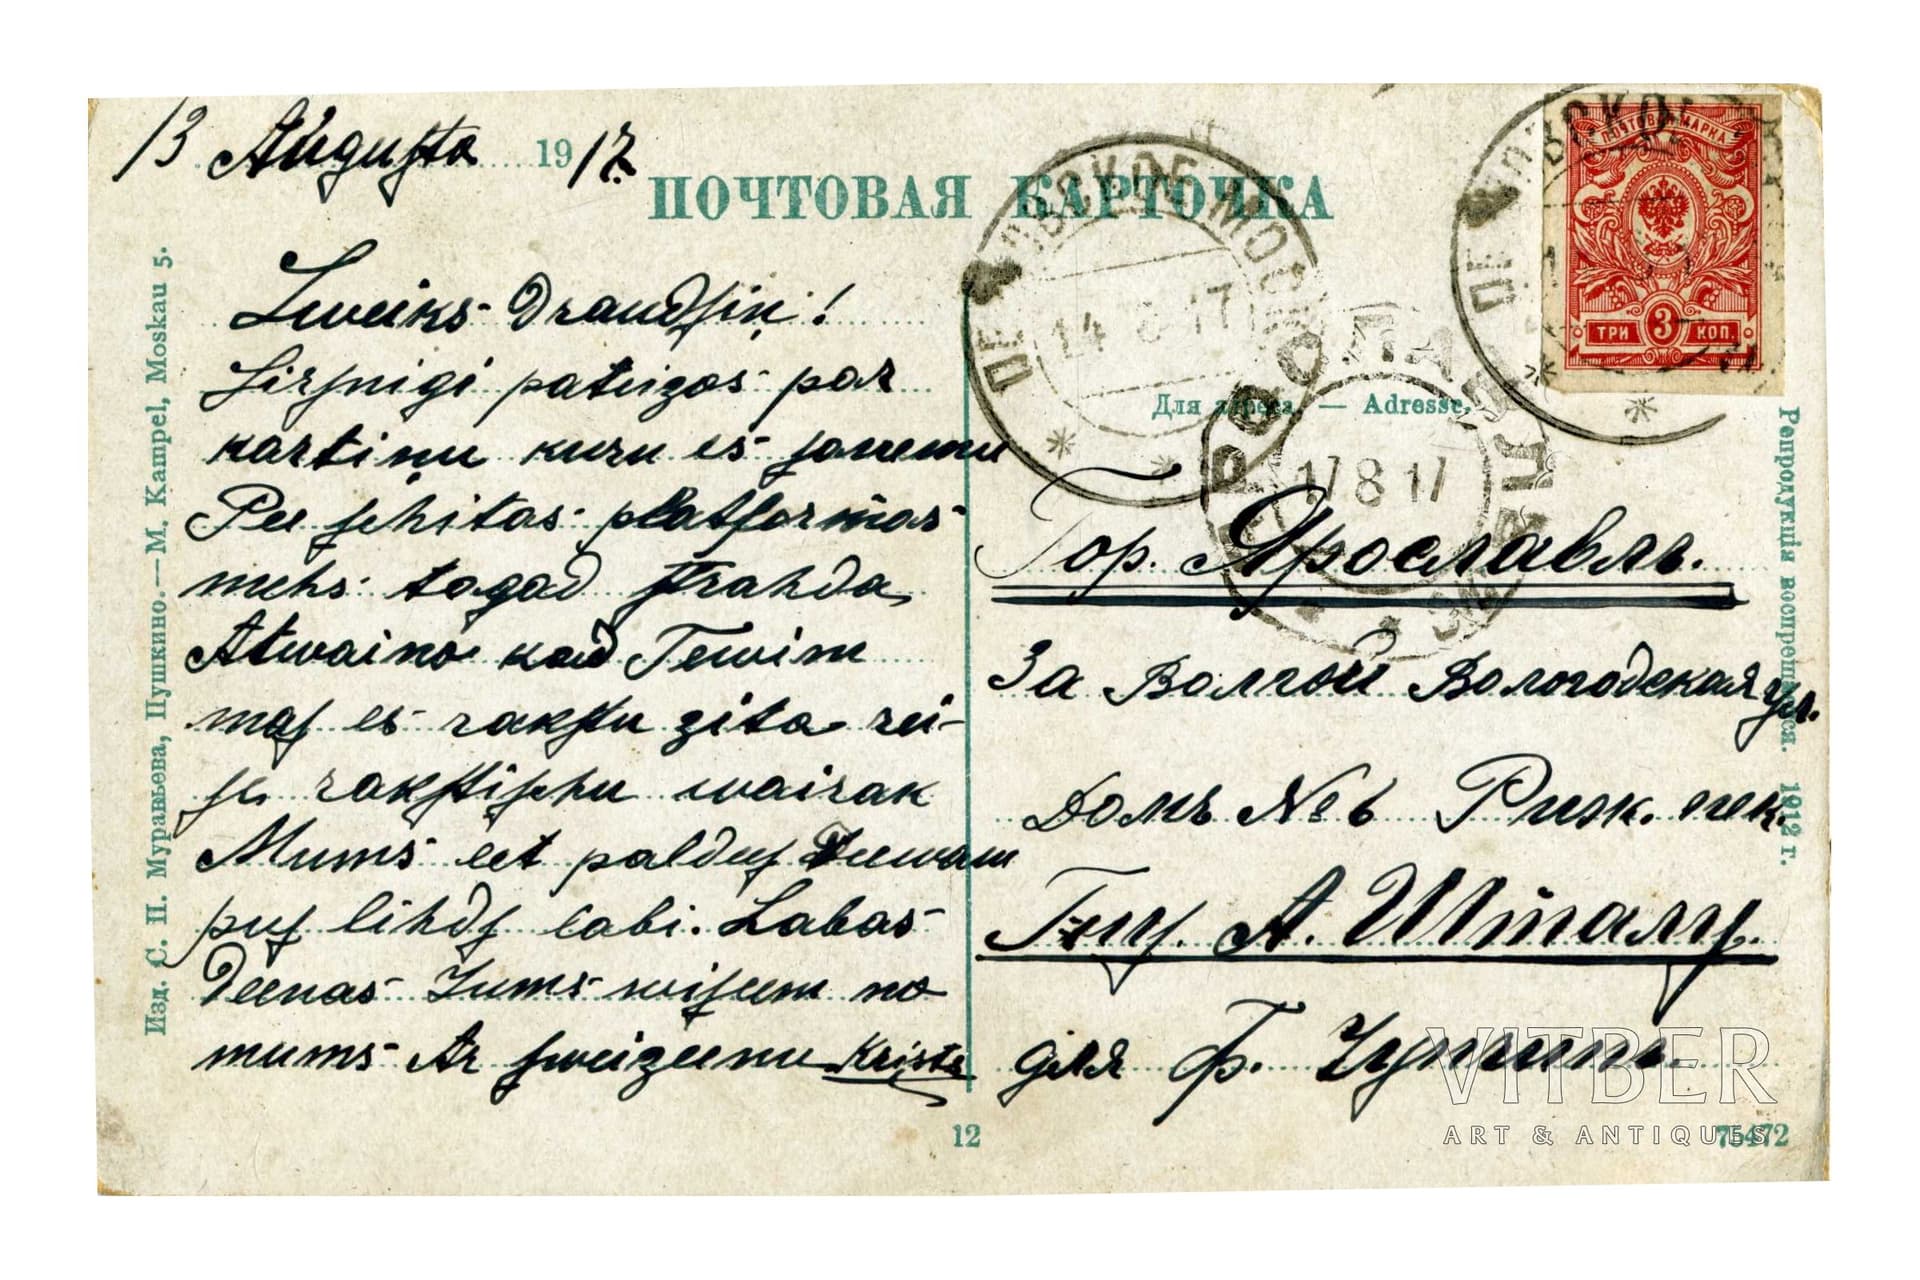 13 Augusta 1917.
ПОЧТОВАЯ КАРТОЧКА
Sweiks Draudsiņ!
Sirsnigi pateizos par
kartinu kuru es saņemu
Pee schitas platformas
mehs tagad strahda
Atwaino kad Tewim
mas es rakstu zita rei-
se rakstischu wairak
Mums eet paldees Deewam
pus lihds labi. Labas
Deenas Jums wiseem no
mums Ar sweizeenu Krists
ПОЧТОВАЯ МАРКА
3
ТРИ КОП.
14 8 17
ЯРОСЛАВЛЬ
17 8 17
Для адреса. — Adresse.
Гор. Ярославль.
За Волгой Вологодская ул.
Домъ № 6 Риж. пек.
А. Шталу.
для Ф.
Изд. С. П. Муравьева, Пушкино. — M. Kampel, Moskau 5.
Репродукція воспрещается. 1912 г.
12
75472
VITBER
ART & ANTIQUES